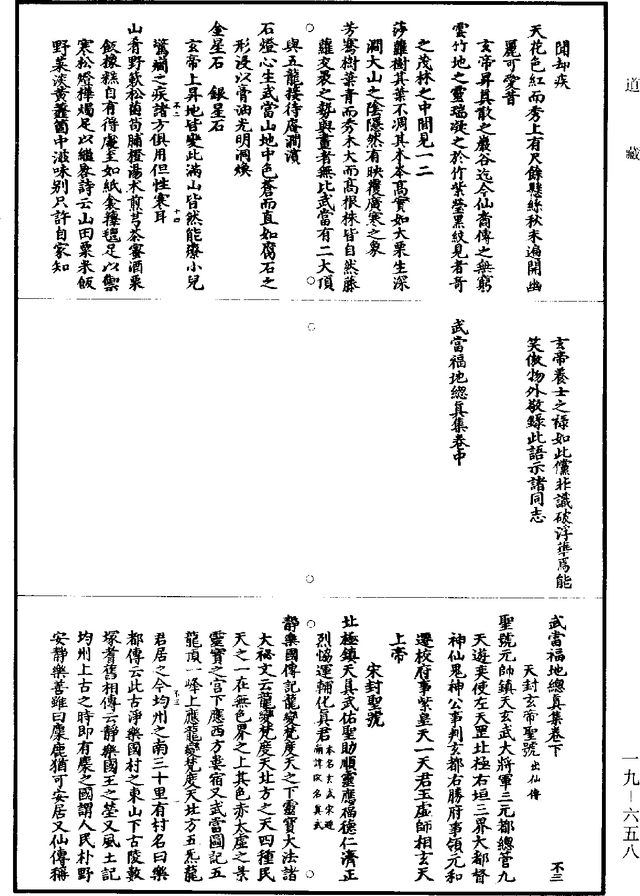 道藏
聞却疾
天花色紅而秀上有尺餘懸絲秋末遍開幽
麗可愛昔
玄帝昇真散之巖谷迄今仙裔傳之無窮
雲竹地之靈瑞凝之於竹紫瑩黑紋見者奇
之茂林之中間見一二
莎蘿樹其葉不凋其本夲高實如大栗生深
澗大山之陰隱然有映覆廣寒之象
芳騫樹葉青而秀木大而高根株皆自然藤
蘿交裹之勢與畫者無比武當有二大頂
與五龍接待庵澗濱
石燈心生武當山地中色蒼而直如腐石之
形浸以膏油光明洞煥
金星石 銀星石
玄帝上昇地皆變此滿山皆然能療小兒
驚癇之疾諸方俱用但性寒耳
不二 十四
山肴野蔌松菌茍脯橙湯朮煎芎茶蜜酒栗
飯橡糕自有得處至如紙衾𣯶毯足以禦
寒松燈樺燭足以繼晷詩云山田粟米飯
野菜淡黃虀箇中滋味別只許自家知
玄帝養士之祿如此儻非識破浮華焉能
笑傲物外敬錄此語示諸同志
武當福地總真集卷中
武當福地總真集卷下
不三
天封玄帝聖號出仙傳
聖號元帥鎮天玄武大將軍三元都總管九
天遊奕使左天罡北極右垣三界大都督
神仙鬼神公事判玄都右勝府事領元和
遷校府事紫皇天一天君玉虛師相玄天
上帝
宋封聖號
北極鎮天真武佑聖助順靈應福德仁濟正
烈恊運輔化真君本名玄武宋避廟諱改名真武
靜樂國傳記龍變梵度天之下靈寶大法諸
大祕文云龍變梵度天北方之天四種民
天之一在無色界之上其色赤太虛之景
靈寶之宫下應西方婁宿又武當圖記五
龍頂一峰上應龍變梵度天北方五炁龍
不三
君居之今均州之南三十里有村名曰樂
都傳云此古淨樂國村之東山下古陵數
塚耆舊相傳云靜樂國王之塋又風土記
均州上古之時即有麇之國謂人民朴野
安靜樂善雖曰麋鹿猶可安居又仙傳稱
一九－六五八